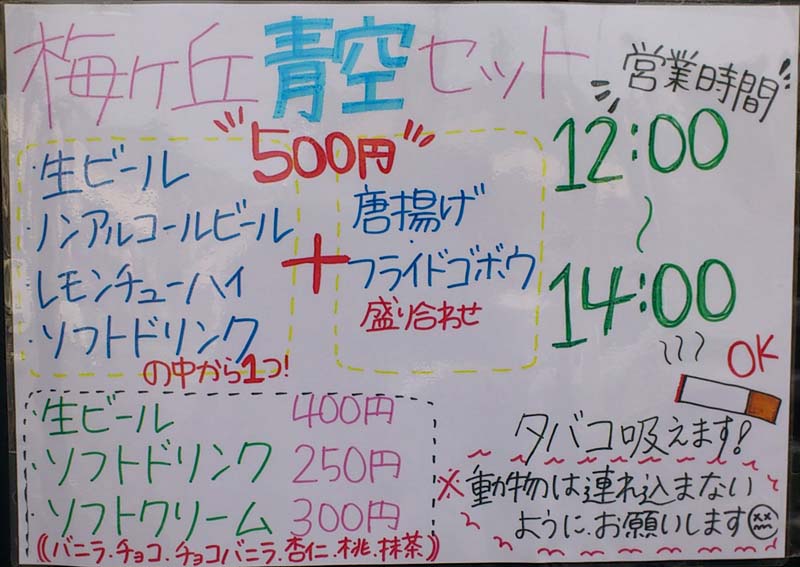 梅ヶ丘青空セット
500円
・生ビール
・ノンアルコールビール
・レモンチューハイ
・ソフトドリンク
の中から1つ!
+
唐揚げ
・
フライドゴボウ
盛り合わせ
営業時間
12:00
〜
14:00
OK
タバコ吸えます!
※動物は連れ込まない
ように、お願いします
・生ビール 400円
・ソフトドリンク 250円
・ソフトクリーム 300円
((バニラ.チョコ.チョコバニラ.杏仁.桃.抹茶))